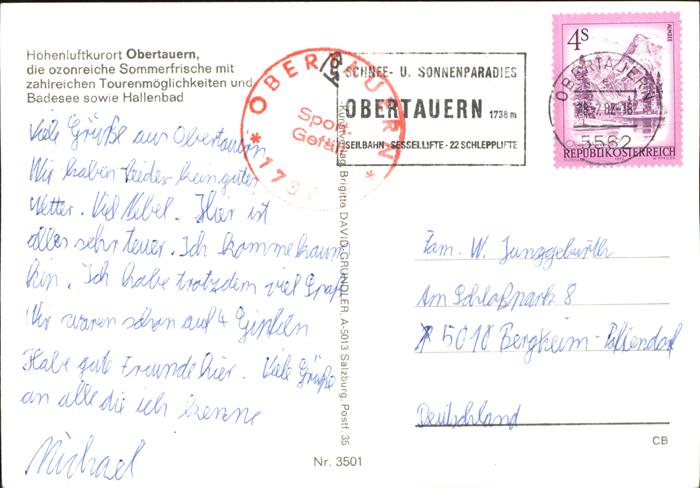 Höhenluftkurort Obertauern,
die ozonreiche Sommerfrische mit
zahlreichen Tourenmöglichkeiten und
Badesee sowie Hallenbad
Viele Grüße aus Obertauern
Wir haben leider kein gutes
Wetter. Viel Nebel. Hier ist
alles sehr teuer. Ich komme kaum
hin. Ich habe trotzdem viel Spaß
Wir waren schon auf 4 Gipfeln
Habe gute Freunde hier. Viele Grüße
an alle die ich kenne
Michael
OBERTAUERN
Sport-
Gefäll
SCHNEE- U. SONNENPARADIES
OBERTAUERN 1738 m
SEILBAHN-SESSELLIFTE-22 SCHLEPPLIFTE
Brigitte DAVID-GRÜNDLER, A-5013 Salzburg, Postf. 35
4S
ALMSEE
OBERTAUERN
5562
REPUBLIK ÖSTERREICH
Fam. W.
Am Schloßpark 8
5010 Bergheim-
Deutschland
CB
Nr. 3501